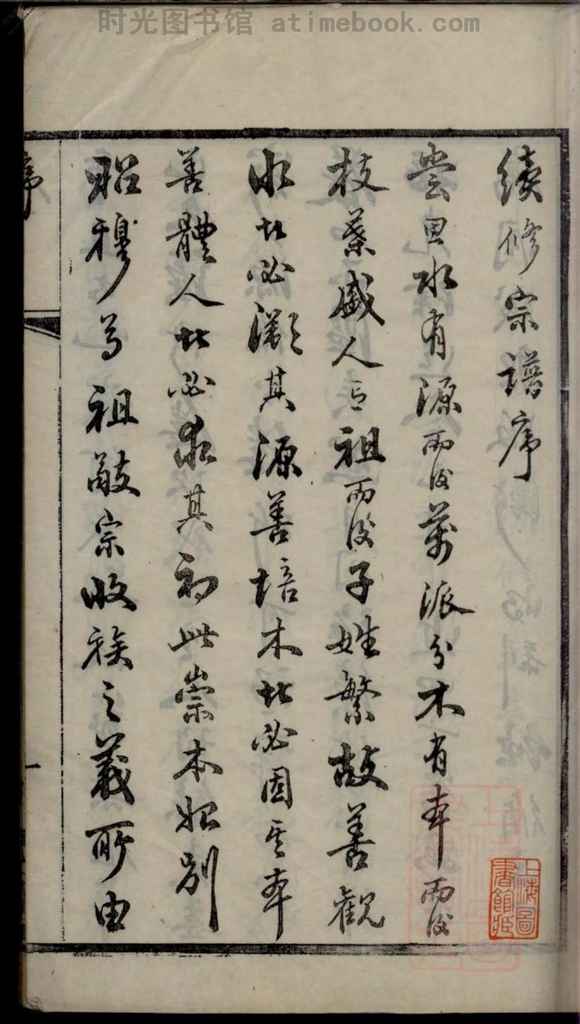 时光图书馆 atimebook.com
續修宗譜序
嘗思水有源而後萬派分木有本而後
枝葉盛人有祖而後子姓繁故善觀
水者必溯其源善培木者必固其本
善體人者必求其初此崇本始別
昭穆尊祖敬宗收族之義所由
序
一
上海圖書館藏